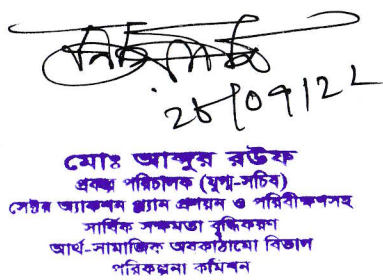 ২৮/০৭/২২
মোঃ আব্দুর রউফ
প্রকল্প পরিচালক (যুগ্ম-সচিব)
সেক্টর অ্যাকশন প্ল্যান প্রণয়ন ও পরিবীক্ষণসহ
সার্বিক সক্ষমতা বৃদ্ধিকরণ
আর্থ-সামাজিক অবকাঠামো বিভাগ
পরিকল্পনা কমিশন